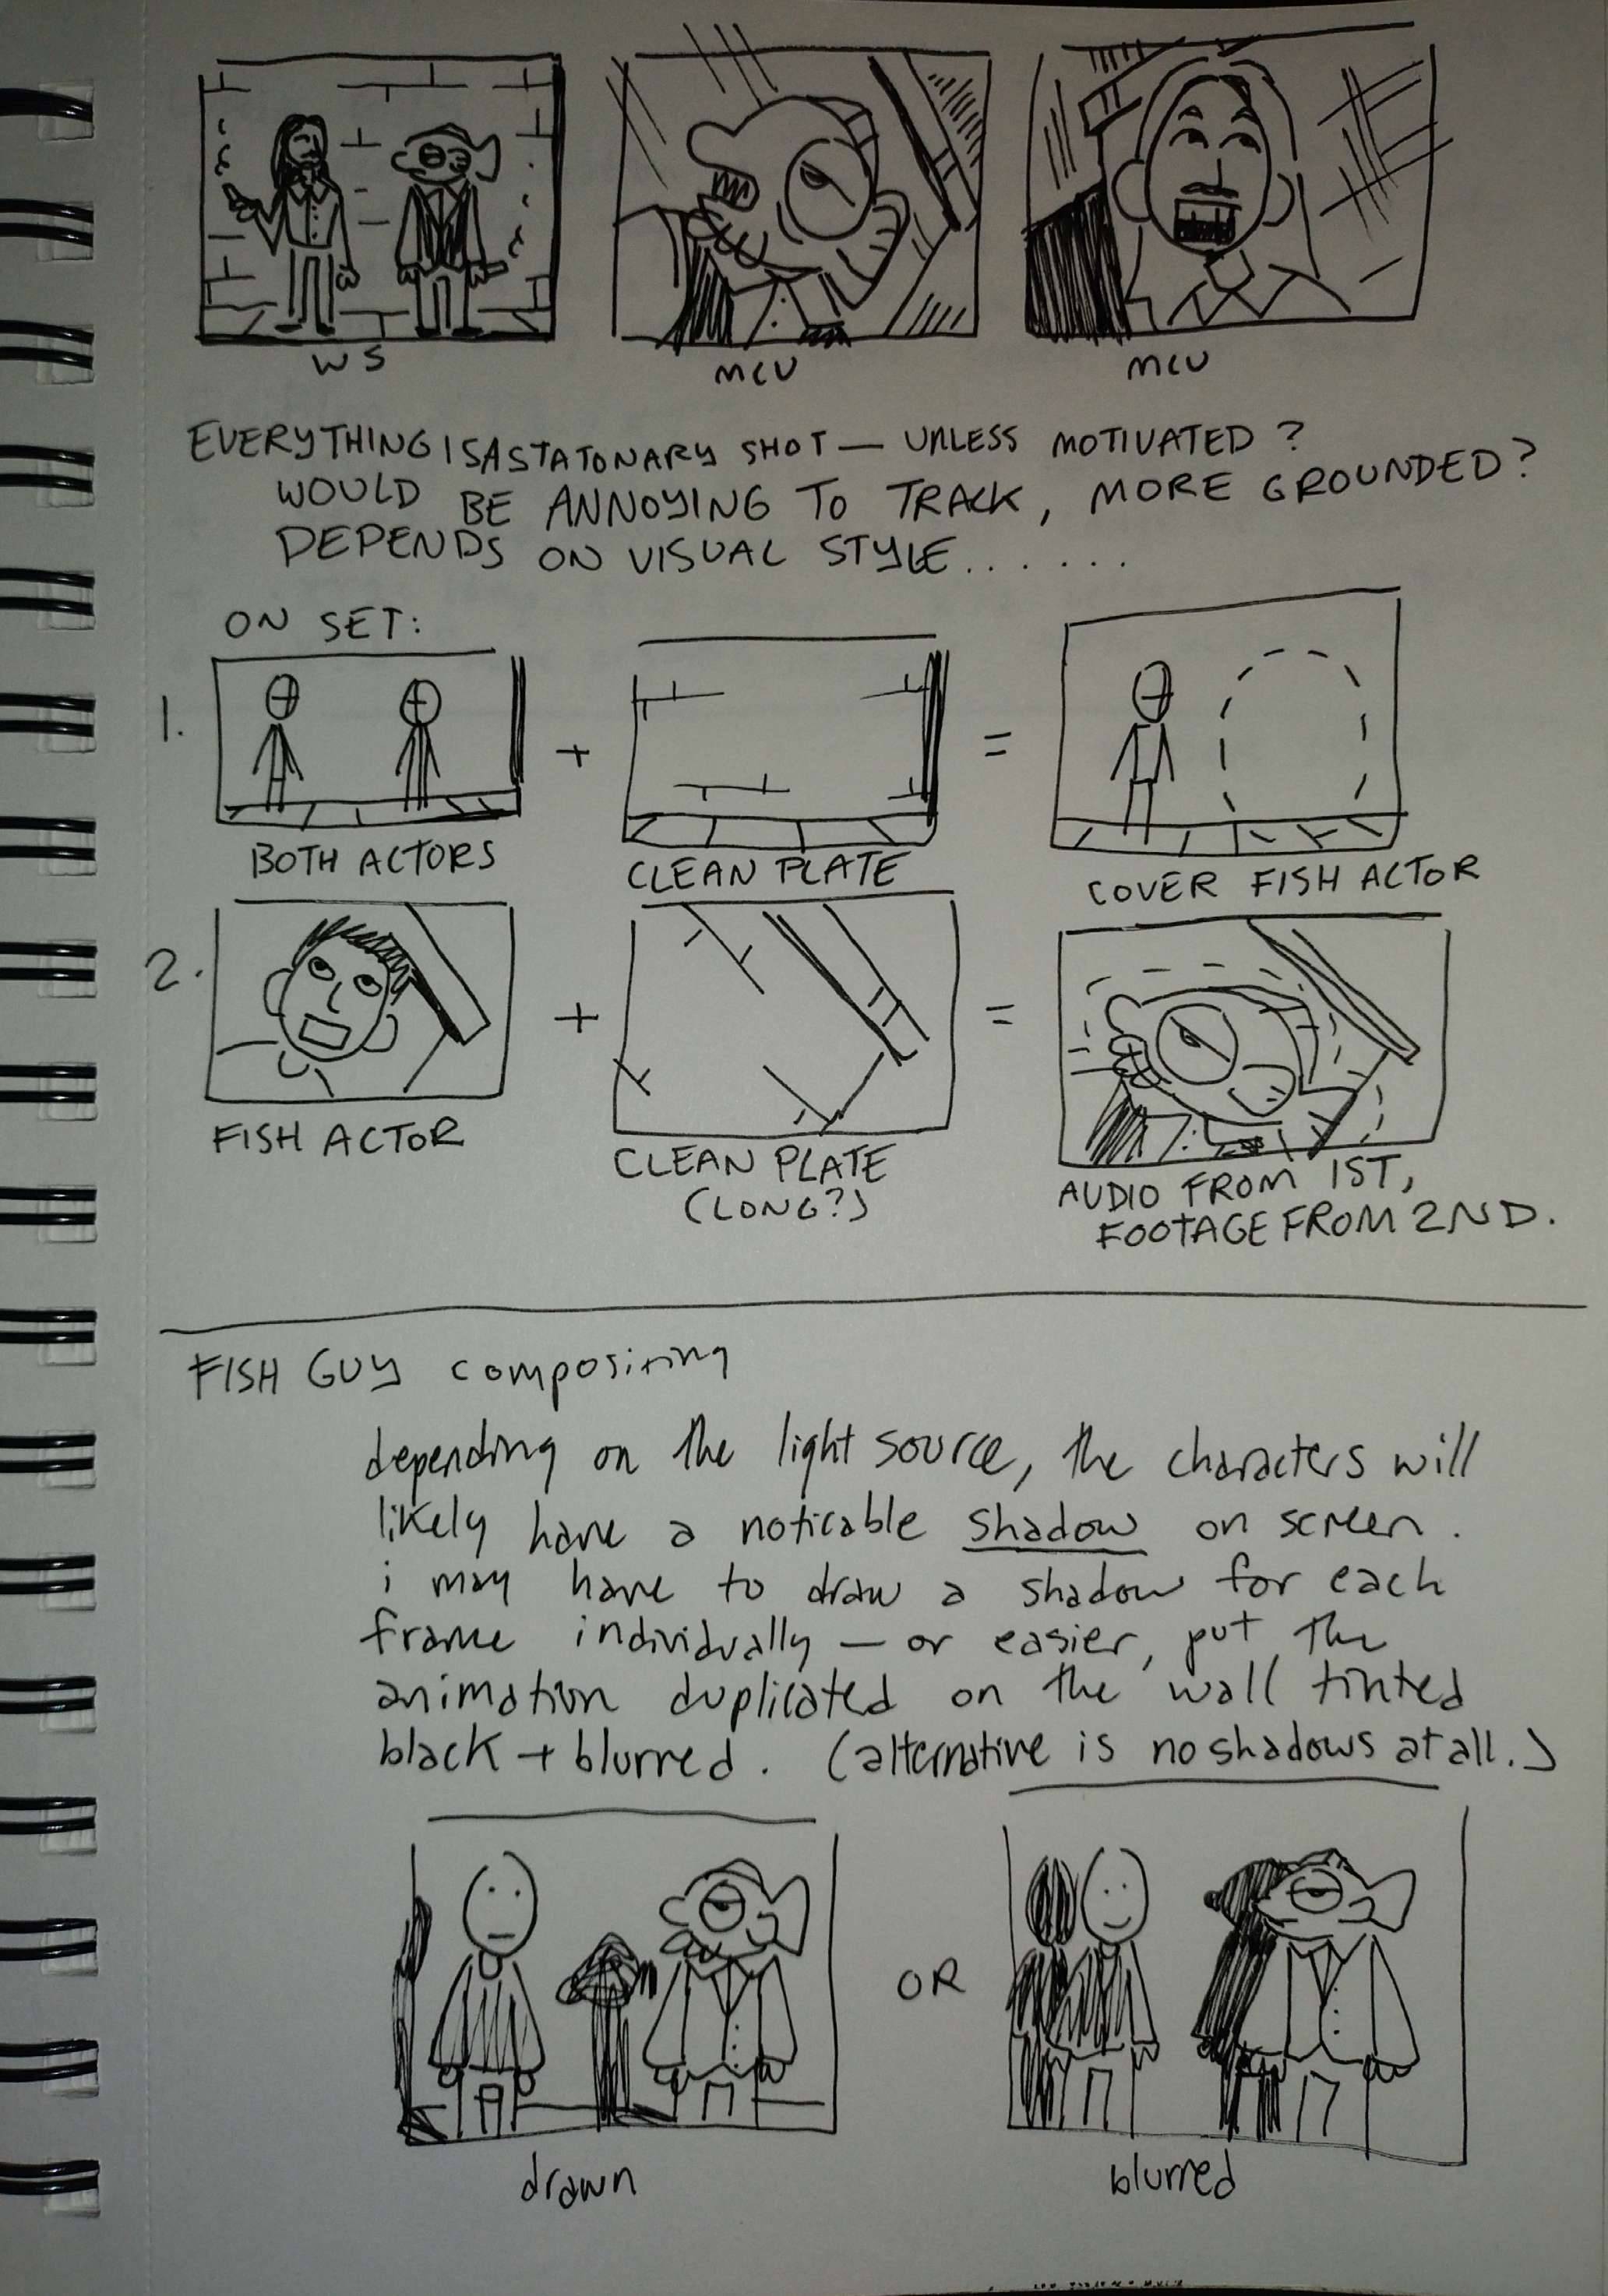 WS
MCU
MCU
EVERYTHING IS A STATONARY SHOT — UNLESS MOTIVATED?
WOULD BE ANNOYING TO TRACK, MORE GROUNDED?
DEPENDS ON VISUAL STYLE......
ON SET:
1.
+
=
BOTH ACTORS
CLEAN PLATE
COVER FISH ACTOR
2.
+
=
FISH ACTOR
CLEAN PLATE
(LONG?)
AUDIO FROM 1ST,
FOOTAGE FROM 2ND.
FISH GUY compositing
depending on the light source, the characters will
likely have a noticable shadow on screen.
i may have to draw a shadow for each
frame individually — or easier, put the
animation duplicated on the wall tinted
black + blurred. (alternative is no shadows at all.)
OR
drawn
blurred